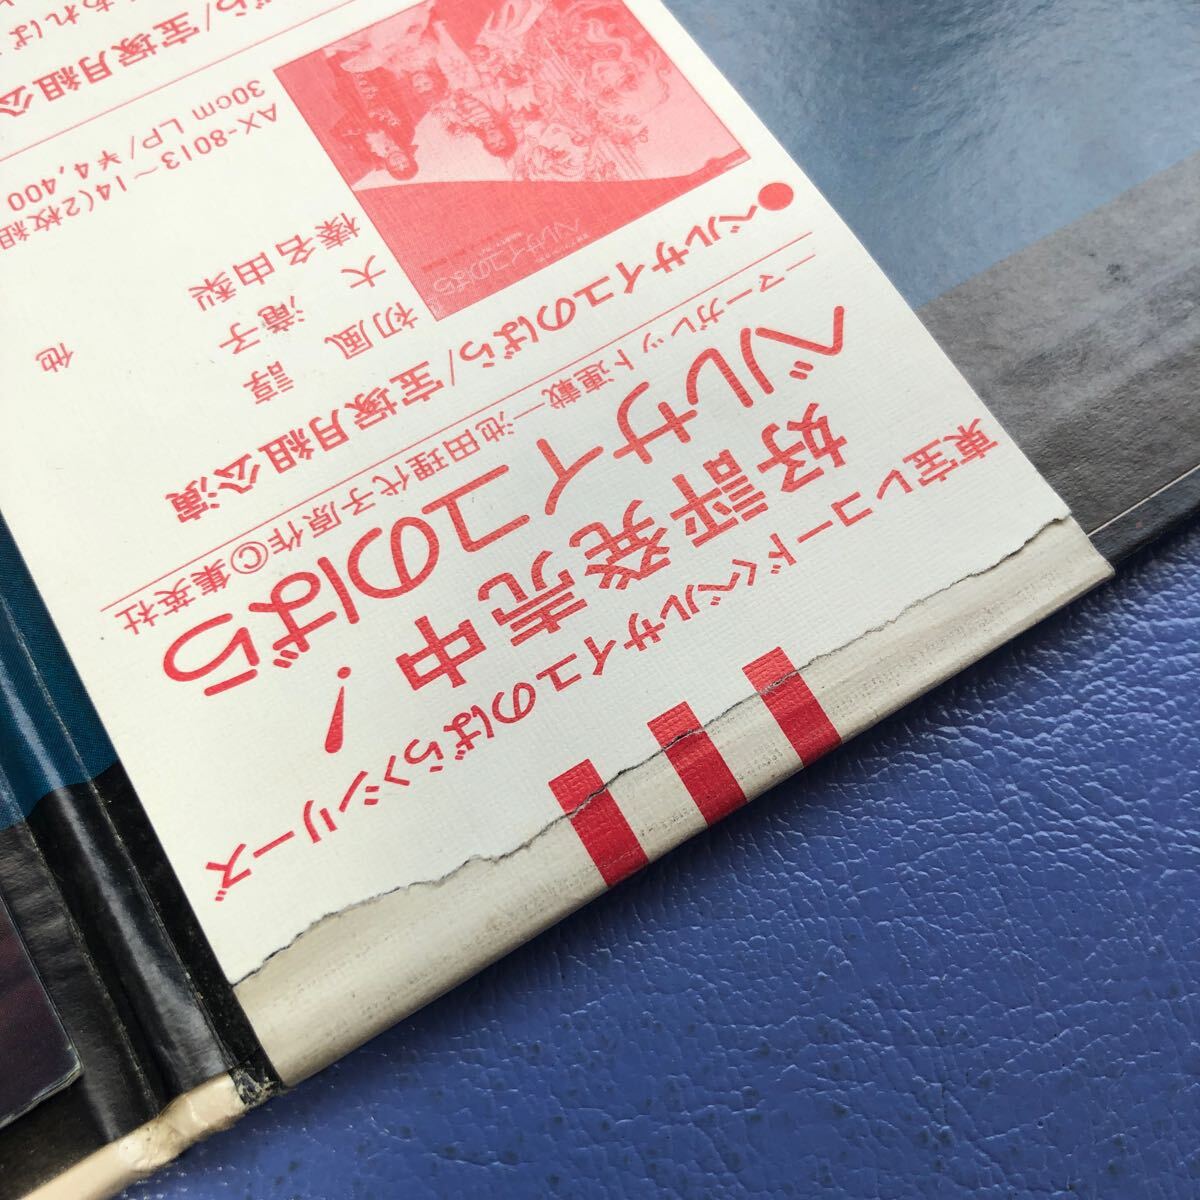 東宝レコード〈ベルサイユのばら〉シリーズ
好評発売中!
ベルサイユのばら
—マーガレット連載—池田理代子原作©集英社
●ベルサイユのばら/宝塚月組公演
ベルサイユのばら
初風 諄
大 滝子
榛名由梨
他
AX-8013~14(2枚組
30cm LP/¥4,400
ら/宝塚月組公
あれば